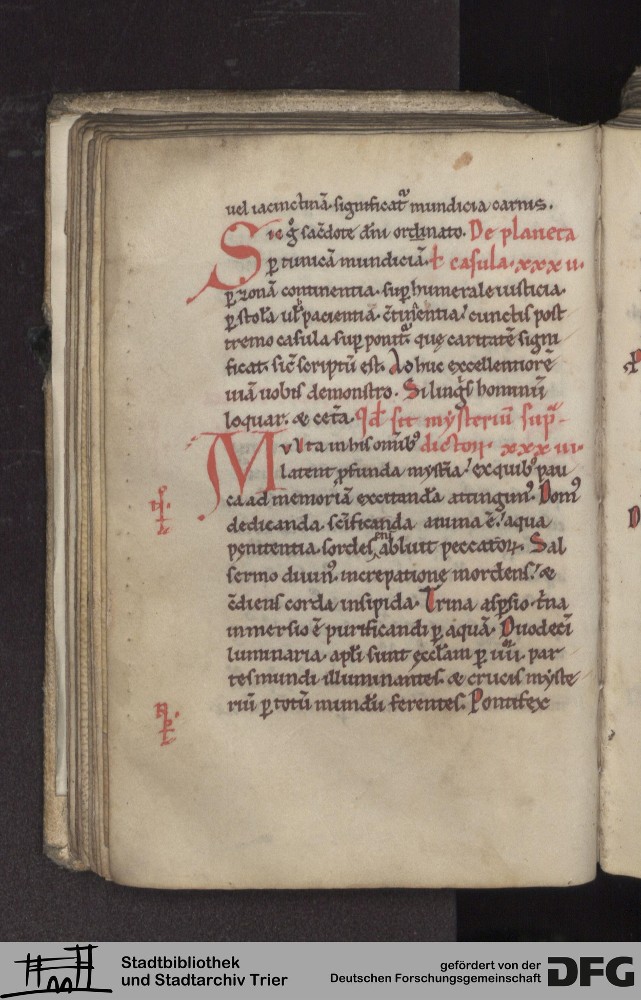 uel iacinctinā· significat᷑ mundicia carnis.
Sic g̊ sac̄dote d̄m ordinato. De planeta
ꝑ tunicā mundiciā· ł casula· xxxu·
ꝑ zonā continentia· suꝑhumerale iusticia·
ꝑ stolā uł pacientiā· cunctis post
tremo casula suꝑ ponit᷑ que caritatē signi
ficat· sic̄ scriptū est. Adhuc excellentiorē
uiā uobis demonstro. Si linguis hominū
loquar· & ceta. Qd̄ sit mysteriū sup̄
Multa in his omīb᷒ dictoꝝ· xxxui·
latent ꝓfunda mysteria· ex quib᷒ pau
ca ad memoriā excitanda attingim᷒. Dom᷒
dedicanda· sc̄ificanda anima ē· aqua
penitentia· sordes abluit peccatoꝝ. Sal
sermo diuin᷒ increpatione mordens· &
c̄diens corda insipida· Trina aspsio· t̄na
inmersio ē purificandi ꝑ aquā. Duodecī
luminaria· apl̄i sunt eccl̄am ꝑ iiii par
tes mundi illuminantes· & crucis myste
riū ꝑ totū mundū ferentes. Pontifex
Stadtbibliothek
und Stadtarchiv Trier
gefördert von der
Deutschen Forschungsgemeinschaft
DFG